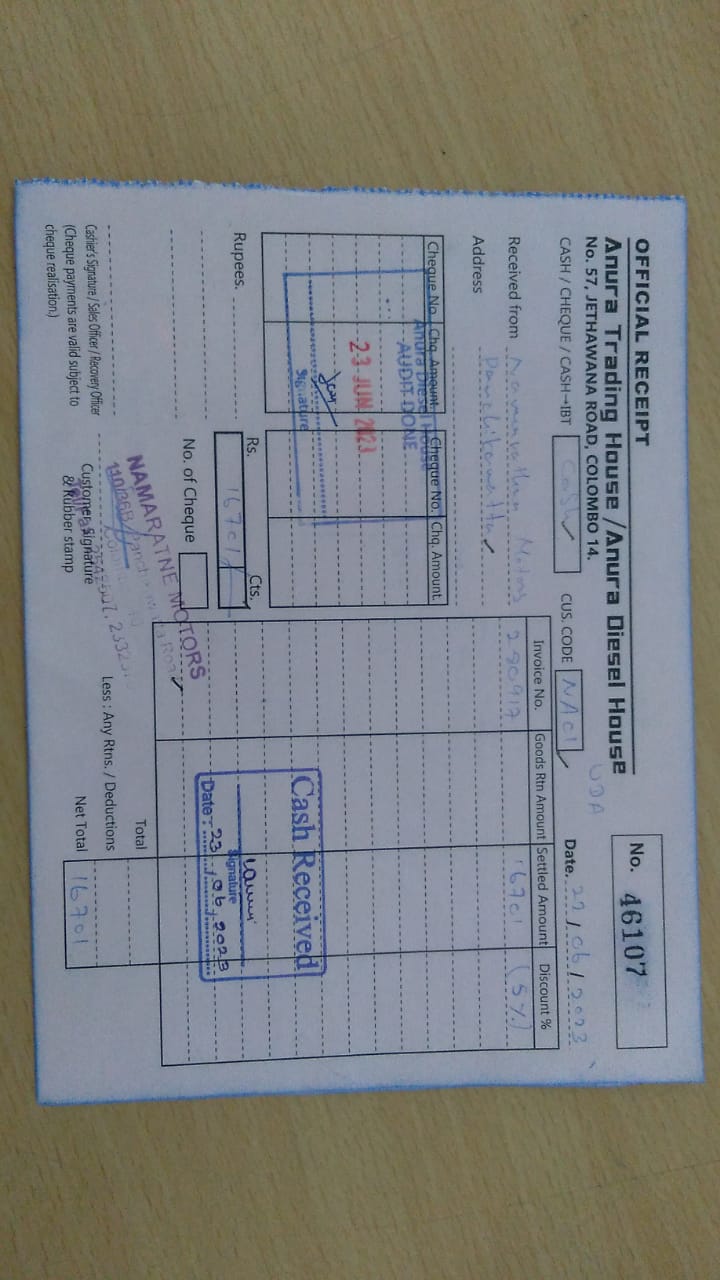 OFFICIAL RECEIPT
Anura Trading House /Anura Diesel House
No. 57, JETHAWANA ROAD, COLOMBO 14.
No. 46107
UDA
CASH / CHEQUE / CASH→IBT Cash
CUS. CODE NA01
Date. 22/06/2023
Received from Motors
Address Panchikawatta
Cheque No. Chq Amount. Cheque No. Chq. Amount.
Anura Diesel House
AUDIT DONE
23 JUN 2023
Signature
Invoice No. Goods Rtn Amount Settled Amount Discount %
280917 16701 (5%)
Cash Received
Signature
Date : 23/06/2023
Rupees.
Rs. Cts.
16701/-
No. of Cheque
NAMARATNE MOTORS
Total
Less : Any Rtns. / Deductions
Net Total 16701
Cashier's Signature / Sales Officer / Recovery Officer
(Cheque payments are valid subject to
cheque realisation.)
Customer Signature
& Rubber stamp